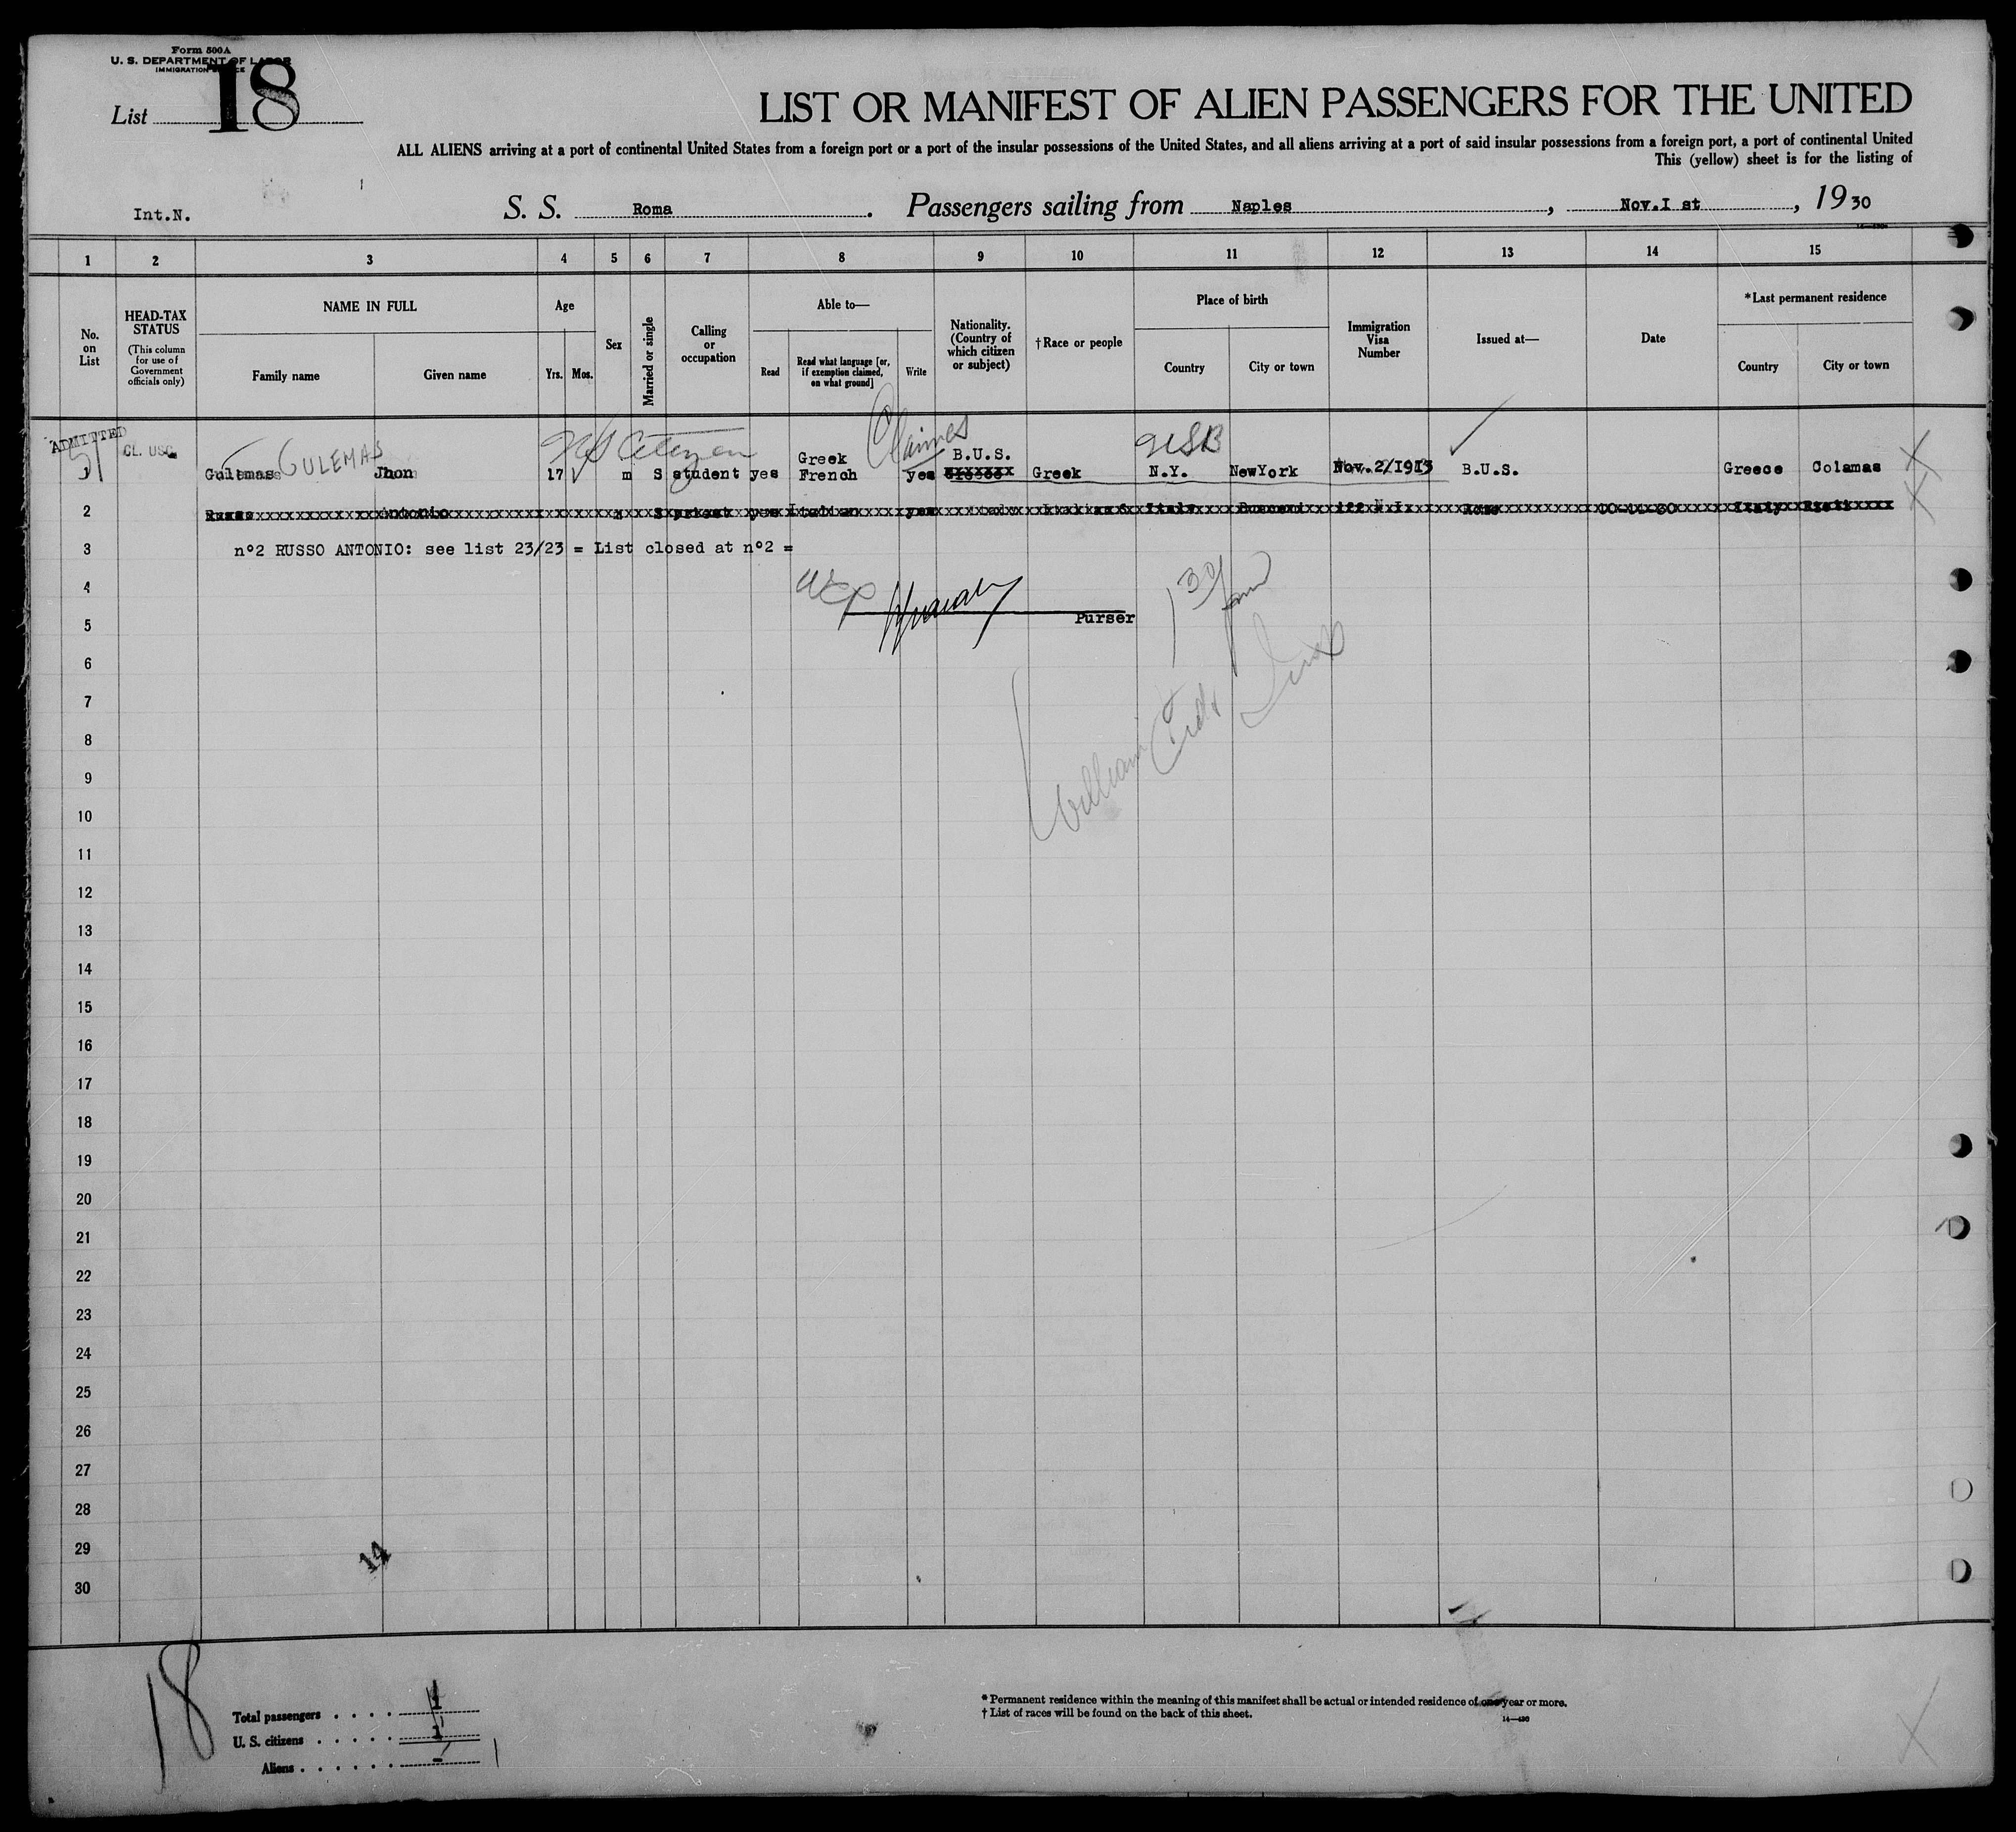 Form 500A
U. S. DEPARTMENT OF LABOR
IMMIGRATION SERVICE
List 18
LIST OR MANIFEST OF ALIEN PASSENGERS FOR THE UNITED
ALL ALIENS arriving at a port of continental United States from a foreign port or a port of the insular possessions of the United States, and all aliens arriving at a port of said insular possessions from a foreign port, a port of continental United
This (yellow) sheet is for the listing of
Int.N.
S. S. Roma. Passengers sailing from Naples, Nov.I st, 1930
1 2 3 4 5 6 7 8 9 10 11 12 13 14 15
No. on List
HEAD-TAX STATUS
(This column for use of Government officials only)
NAME IN FULL
Family name
Given name
Age
Yrs. Mos.
Sex
Married or single
Calling or occupation
Able to—
Read
Read what language [or, if exemption claimed, on what ground]
Write
Nationality. (Country of which citizen or subject)
†Race or people
Place of birth
Country
City or town
Immigration Visa Number
Issued at—
Date
*Last permanent residence
Country
City or town
ADMITTED
CL. USC
US Citizen
Claimes
USB
1 Gulemas GULEMAS Jhon 17 m S student yes Greek French yes B.U.S. Greece Greek N.Y. NewYork Nov.2/1913 B.U.S. Greece Colamas
2 Russo Antonio m S priest yes Italian yes Italy 10-11-30 Italy
3 nº2 RUSSO ANTONIO: see list 23/23 = List closed at nº2 =
4
5 Purser
6
William
7
8
9
10
11
12
13
14
15
16
17
18
19
20
21
22
23
24
25
26
27
28
29
14
30
18
Total passengers . . . . 1
U. S. citizens . . . . . 1
Aliens . . . . . . -
* Permanent residence within the meaning of this manifest shall be actual or intended residence of one year or more.
† List of races will be found on the back of this sheet.
14—430